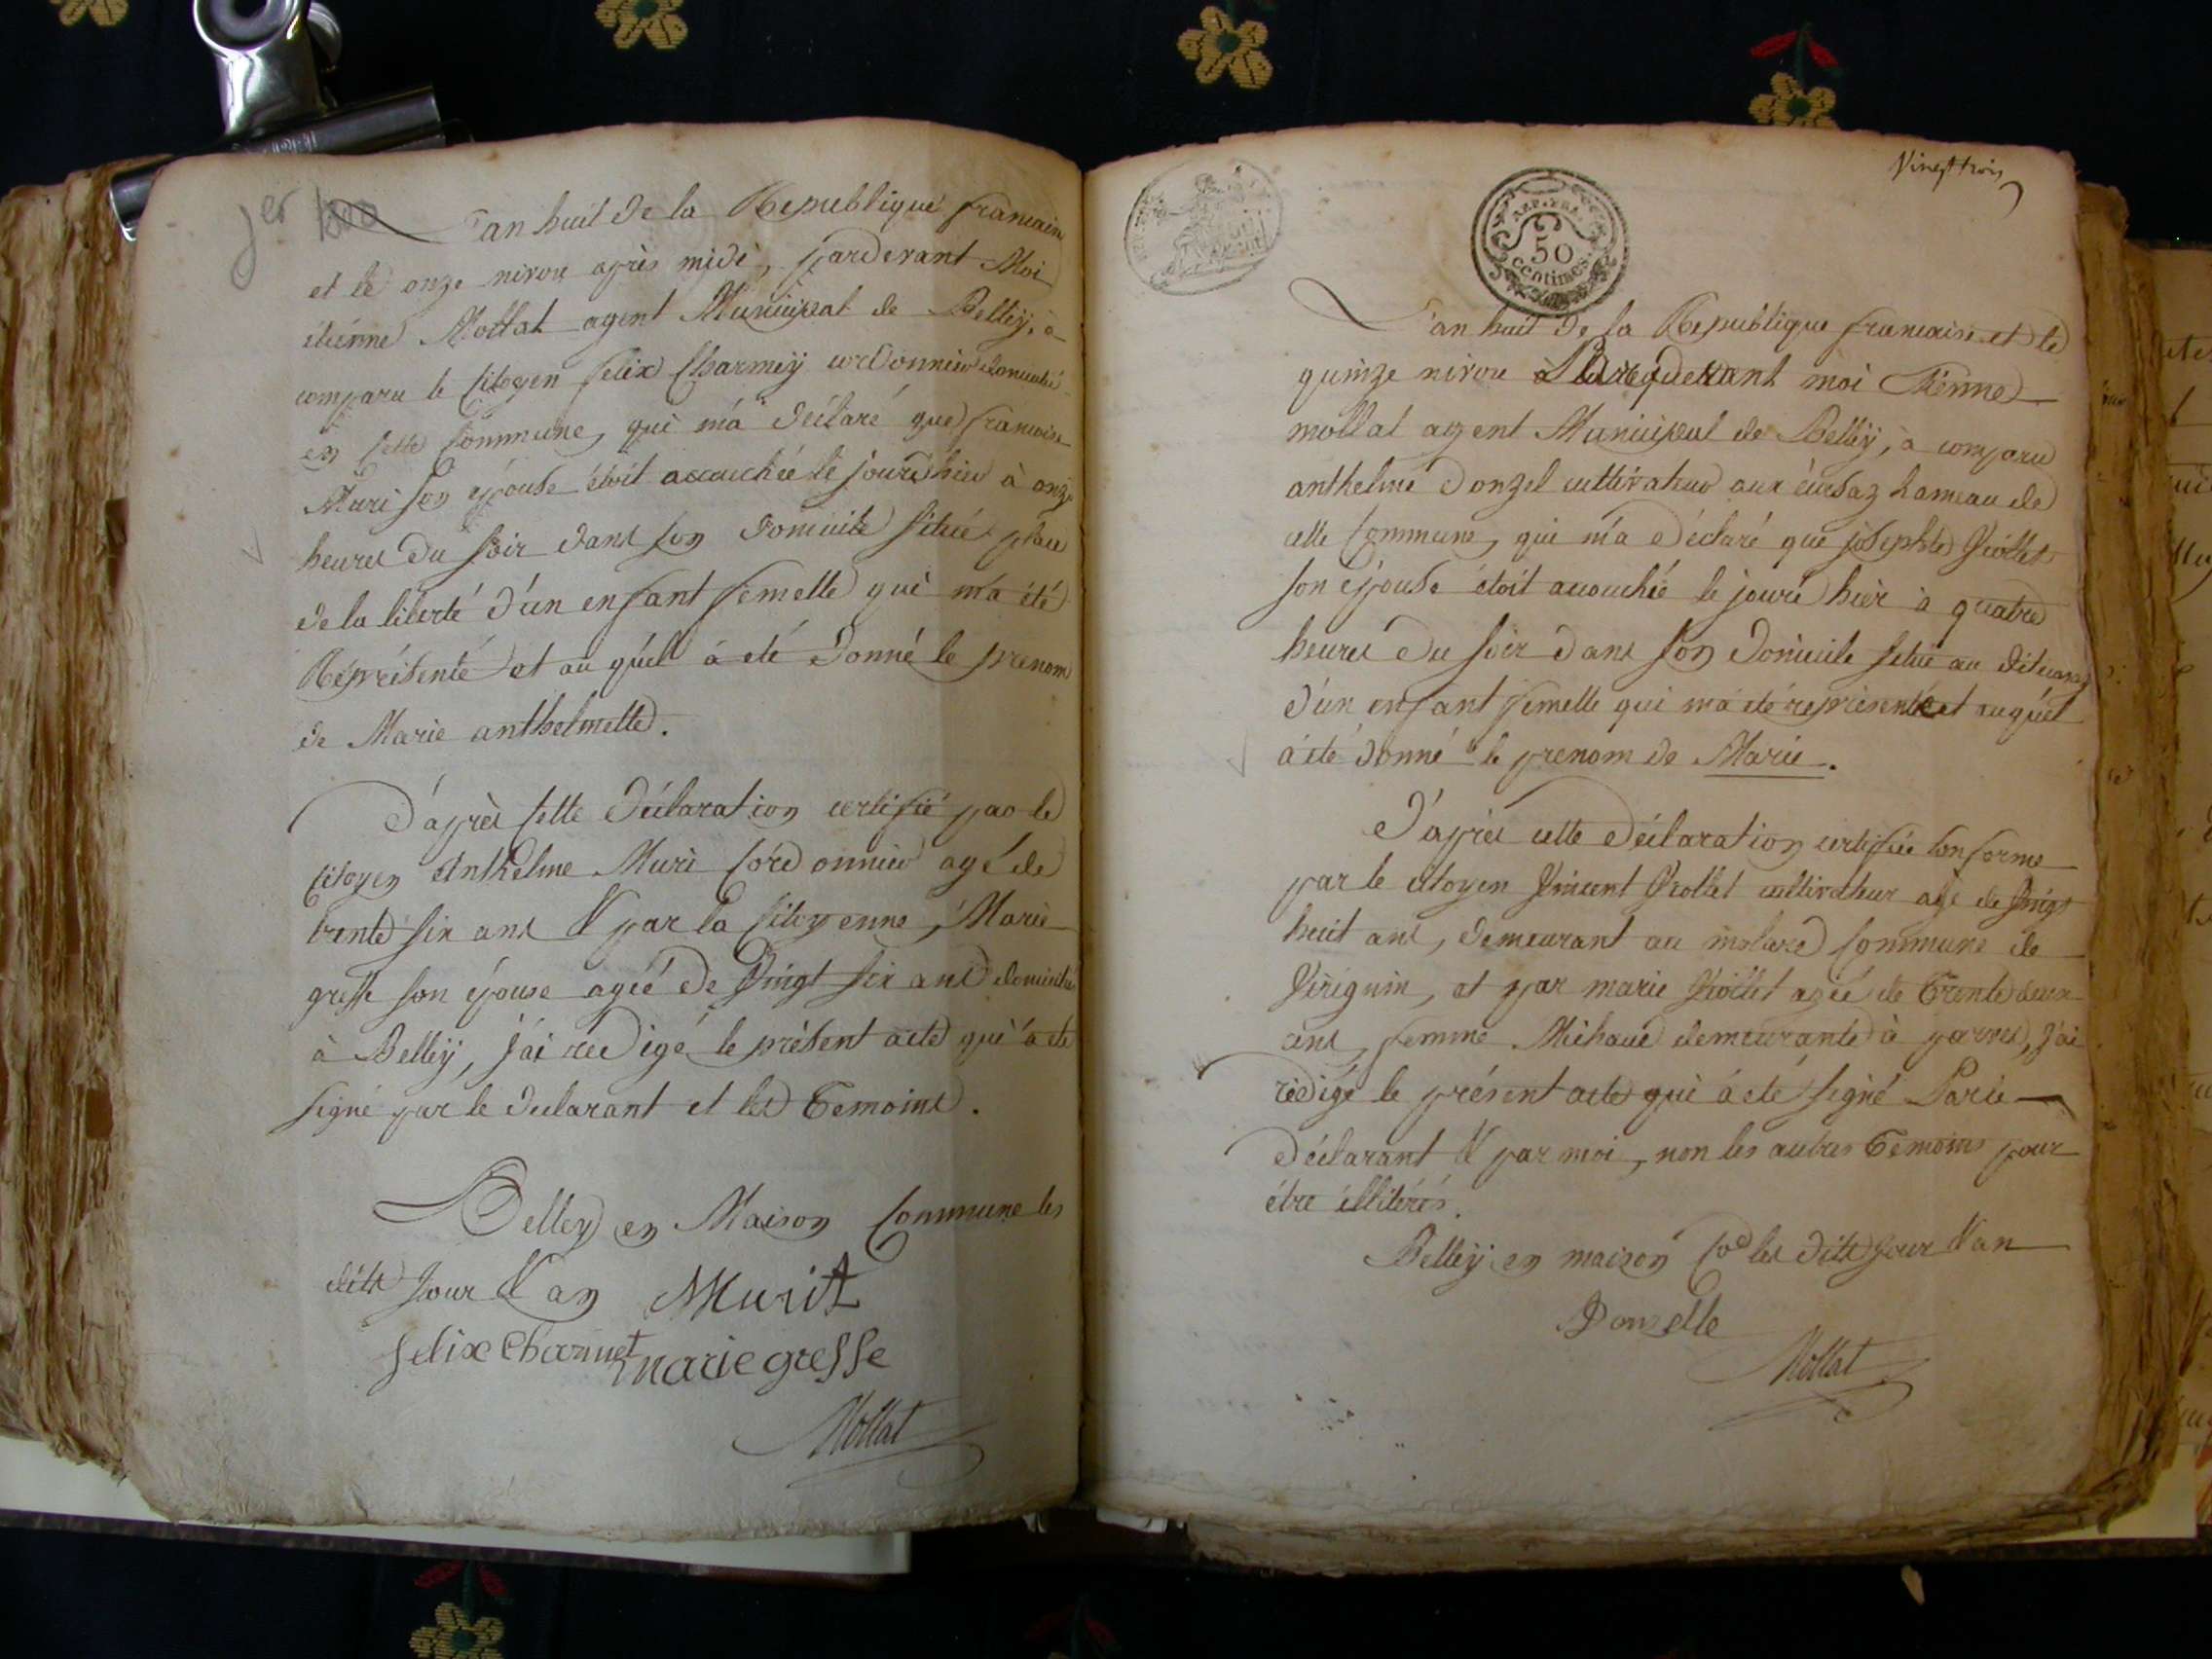 jer 1800
L'an huit de la Republique francaise
et le onze nivose après midi, pardevant Moi
étiénne Mollat agent Municipal de Belleÿ, à
comparu le Citoyen felix Charmeÿ cordonnier domicilié
en Cette Commune, qui m'a déclaré que francoise
Muri son épouse étoit accouchée le jour d'hier à onze
heures du soir dans son domicile situé place
de la liberté d'un enfant femelle qui m'a été
Réprésenté et au quel à eté donné le prenom
de Marie anthelmette.
D'après Cette déclaration certifié par le
Citoyen Anthelme Muri Cordonnier agé de
trente six ans & par la Citoyenne, Marie
gresse son épouse agéé de Vingt six ans domicilié
à Belleÿ, j'ai redigé le présent acte qui à eté
signé par le declarant et les Temoins.
Belley en Maison Commune les
dits Jour & an Murit
felix Charmet marie gresse
Mollat
Vingt trois
REP. FRA.
50
centimes.
L'an huit de la Republique francaise et le
quinze nivose pardevant moi Etiénne
mollat agent Municipal de Belleÿ, à comparu
anthelme Donzel cultivateur aux écusaz hameau de
cette Commune, qui m'a déclaré que josephte Violliet
son épouse étoit accouchée le jour d'hiér à quatre
heures du soir dans son domicile situé au dit
d'un enfant femelle qui m'a eté représenté et auquel
à eté donné le prenom de Marie.
D'après cette déclaration certifiée Conforme
par le citoyen Vincent Viollet cultivateur agé de Vingt
huit ans, demeurant au molard Commune de
Virignin, et par marie Viollet agéé de Trente deux
ans, femme Michaud demeurante à parves, j'ai
rédigé le présent acte qui à eté signé Par le
Déclarant & par moi, non les autres Temoins pour
étre illitérés.
Belleÿ en maison Coe les dits Jour & an
Donzelle
Mollat